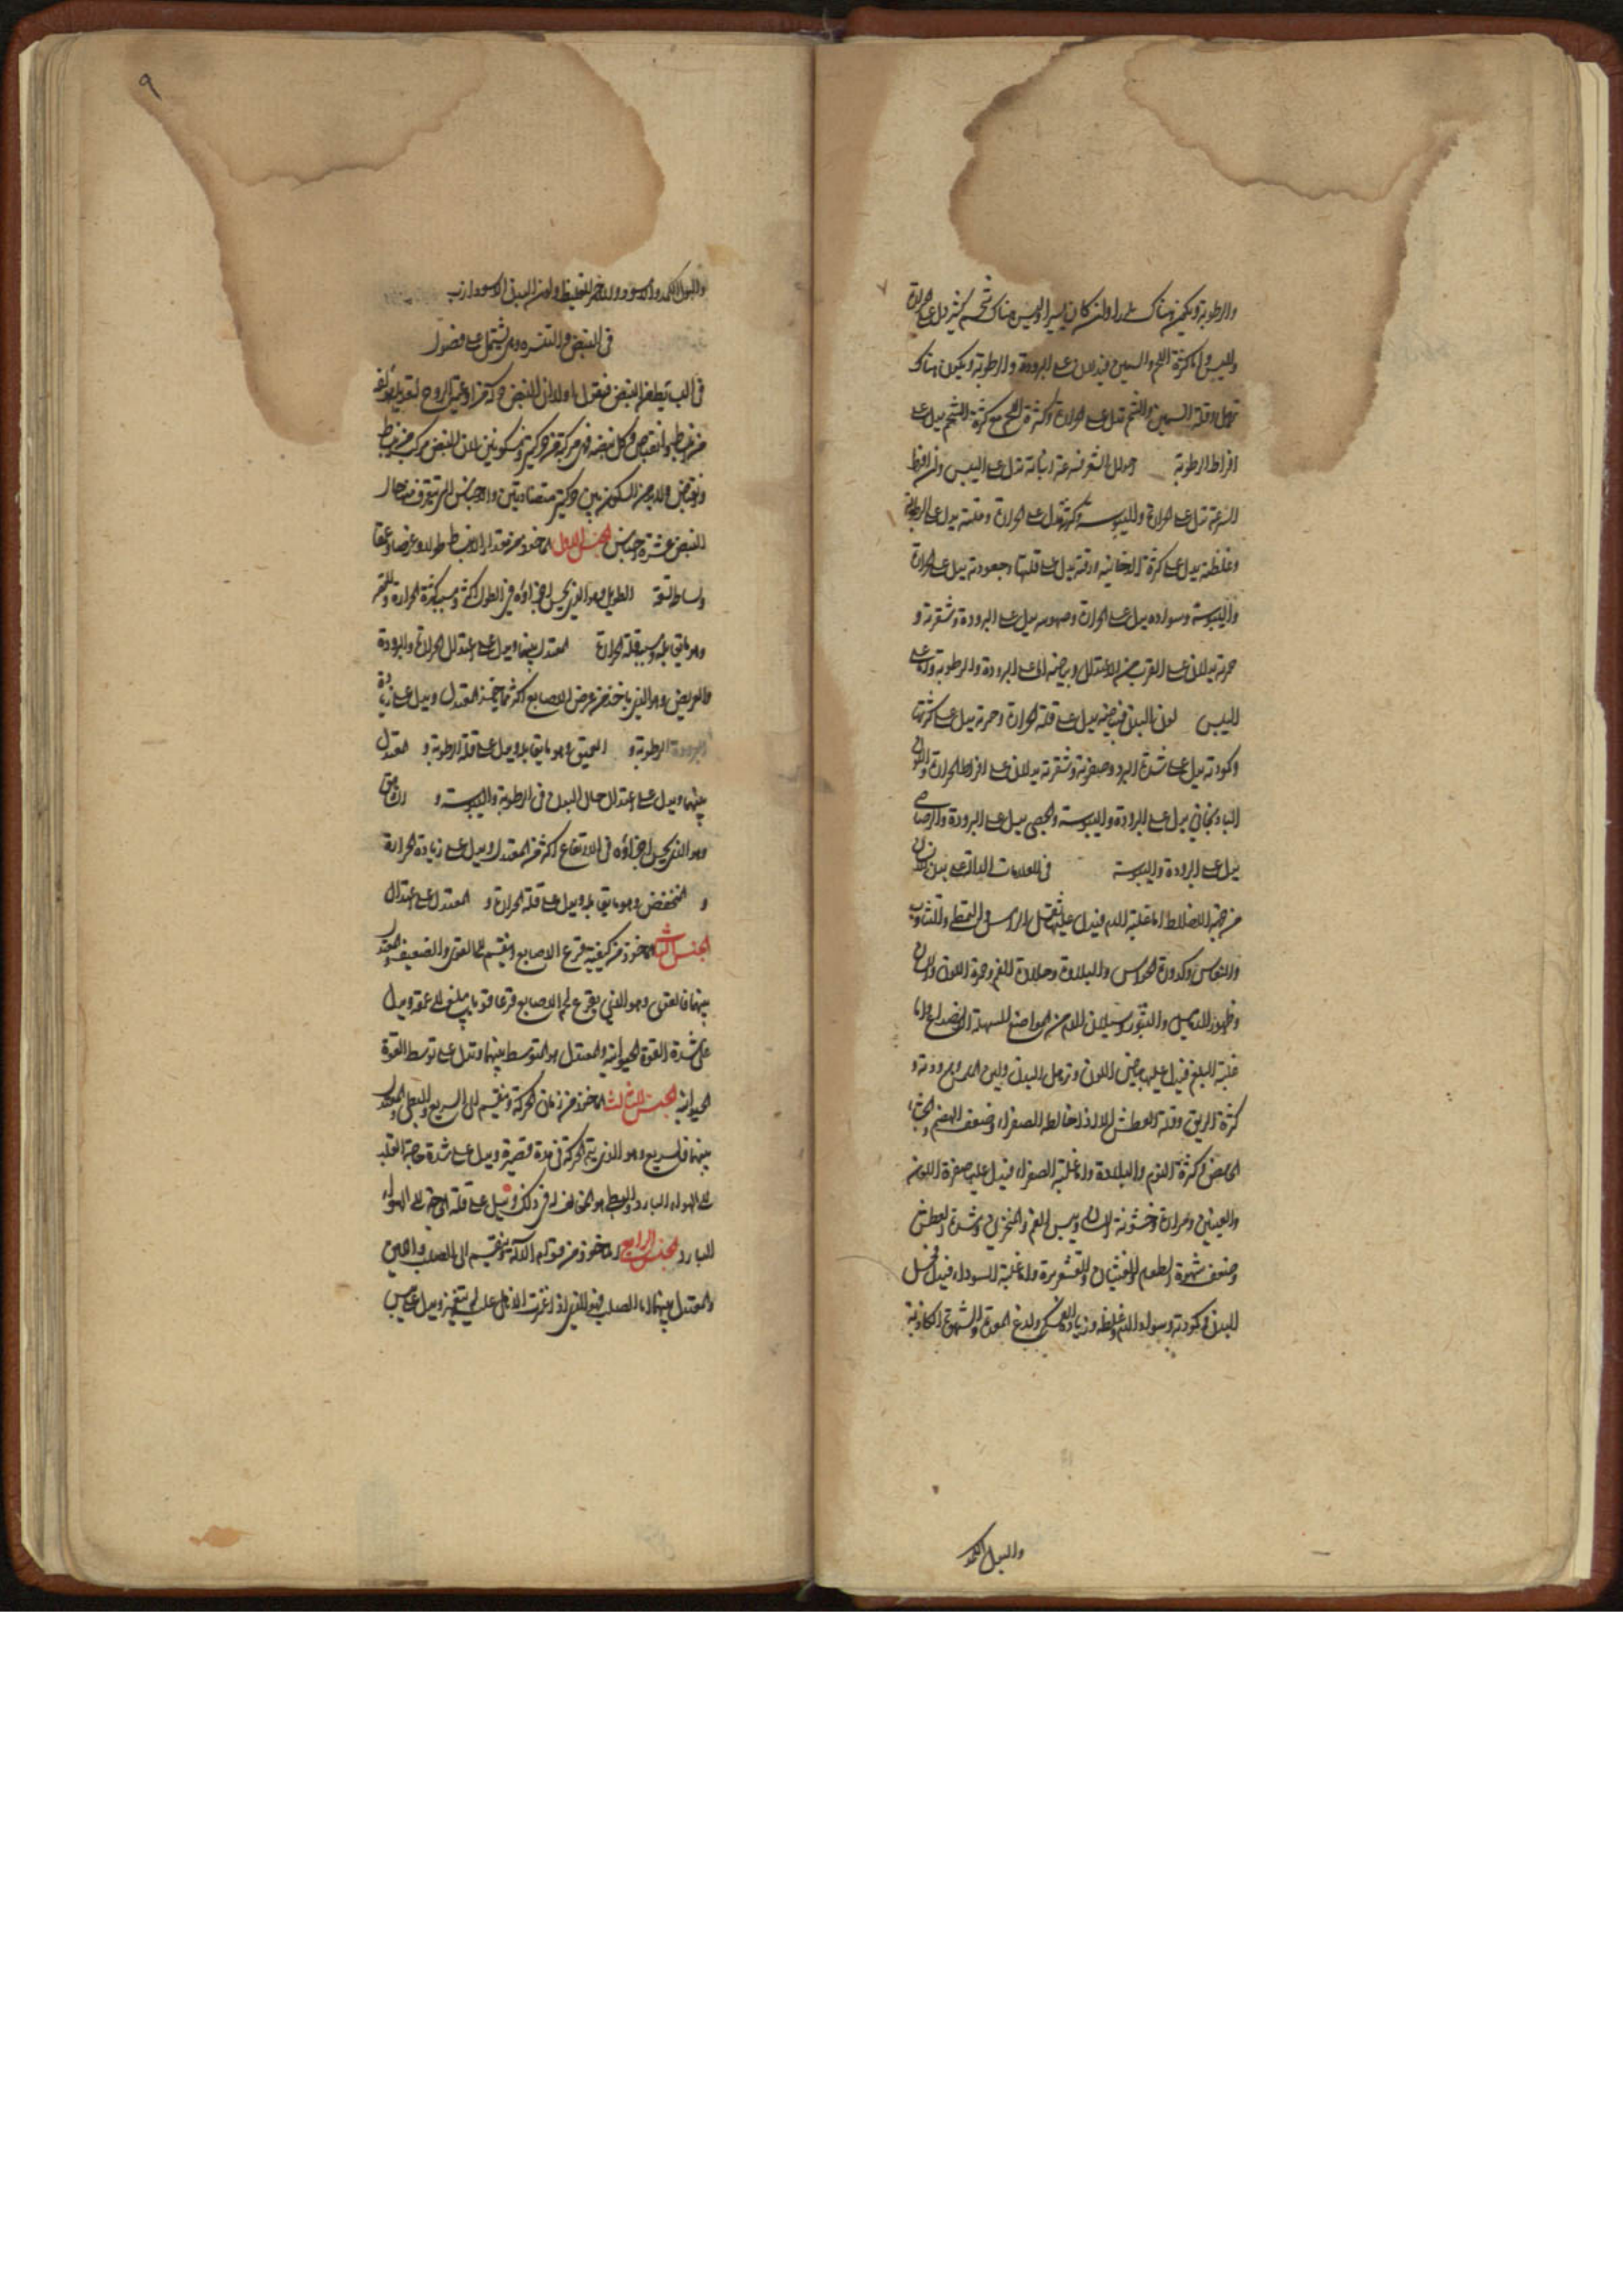 والرطوبة ويكون هناك وان كان يسيرا وليس هناك شحم كثير دل على الحرارة
واليبس واما كثرة اللحم والسمين فيدلان على البرودة والرطوبة ويكون هناك
ترهل وقلة السمين والشحم تدل على الحرارة وكثرة اللحم مع كثرة الشحم يدل على
افراط الرطوبة الشعر فسرعة نباته تدل على اليبس وان افرط
السرعة تدل على الحرارة واليبوسة وكثرته تدل على الحرارة وقلته يدل على الرطوبة
وغلظته يدل على كثرة الدخانية ورقته يدل على قلتها وجعودته يدل على الحرارة
واليبوسة وسواده يدل على الحرارة وصهوبته يدل على البرودة وشقرته و
حمرته يدلان على القرب من الاعتدال وبياضه اما على البرودة والرطوبة واما على
اليبس لون البدن فبياضه يدل على قلة الحرارة وحمرته يدل على كثرتها
وكمودته يدل على شدة البرد وصفرته وشقرته يدلان على افراط الحرارة واللون
الباذنجاني يدل على البرودة واليبوسة والجصي يدل على البرودة والرصاصي
يدل على البرودة واليبوسة في العلامات الدالة على بدن الانسان
من جهة الاخلاط اما غلبة الدم فيدل عليها ثقل الراس والتمطي والتثاوب
والنعاس وكدورة الحواس والبلادة وحلاوة الفم وحمرة اللون واللسان
وظهور الدماميل والبثور وسيلان الدم من المواضع السهلة الانصداع واما
غلبة البلغم فيدل عليها بياض اللون وترهل البدن ولين الملمس وبرودته و
كثرة الريق وقلة العطش الا اذا خالطه الصفراء وضعف الهضم والجشاء
الحامض وكثرة النوم والبلادة واما غلبة الصفراء فيدل عليها صفرة اللون
والعينين ومرارة وخشونة اللسان ويبس الفم والمنخرين وشدة العطش
وضعف شهوة الطعام والغثيان والقشعريرة واما غلبة السوداء فيدل قحل
البدن وكمودته وسواد الدم وغلظه وزيادة الفكر ولذع المعدة والشهوة الكاذبة
والبول الكمد
٩
والبول الكمد والاسود والاحمر الغليظ ولون البدن الاسود
في النبض والتفسرة وهي يشتمل على فصول
في النبض فنقول اولا ان النبض حركة من اوعية الروح
من انبساط وانقباض وكل نبضة فهي مركبة من حركتين وسكونين لان النبض مركب من انبساط
وانقباض ولا بد من السكون بين حركتين متضادتين والاجناس التي تتعرف منها حال
النبض عشرة اجناس الجنس الاول الماخوذ من مقدار الانبساط طولا وعرضا وعمقا
الطويل وهو الذي يحس اجزاؤه في الطول اكثر وسببه كثرة الحرارة والقصير
وهو ما يقابله وسببه قلة الحرارة المعتدل بينهما ويدل على اعتدال الحرارة والبرودة
والعريض وهو الذي ياخذ من عرض الاصابع اكثر مما ياخذه المعتدل ويدل على زيادة
الرطوبة و العميق وهو ما يقابله ويدل على قلة الرطوبة و المعتدل
بينهما ويدل على اعتدال حال البدن في الرطوبة واليبوسة و الشاهق
وهو الذي يحس اجزاؤه في الارتفاع اكثر من المعتدل ويدل على زيادة الحرارة
و المنخفض وهو ما يقابله ويدل على قلة الحرارة و المعتدل على اعتدال
الجنس الثاني الماخوذ من كيفية قرع الاصابع وينقسم الى القوي والضعيف والمعتدل
بينهما فالقوي وهو الذي يقرع لحم الاصابع قرعا قويا يبلغ الى عمقه ويدل
على شدة القوة الحيوانية والمعتدل هو المتوسط بينهما وتدل على توسط القوة
الحيوانية الجنس الثالث الماخوذ من زمان الحركة وينقسم الى السريع والبطي والمعتدل
بينهما فالسريع وهو الذي يتم الحركة في مدة قصيرة ويدل على شدة حاجة القلب
الى الهواء البارد والبطي هو المخالف له في ذلك ويدل على قلة الحاجة الى الهواء
البارد الجنس الرابع الماخوذ من قوام الآلة وينقسم الى الصلب واللين
والمعتدل بينهما اما الصلب فهو الذي اذا غمزت الانامل عليه لم ينغمز ويدل على يبس